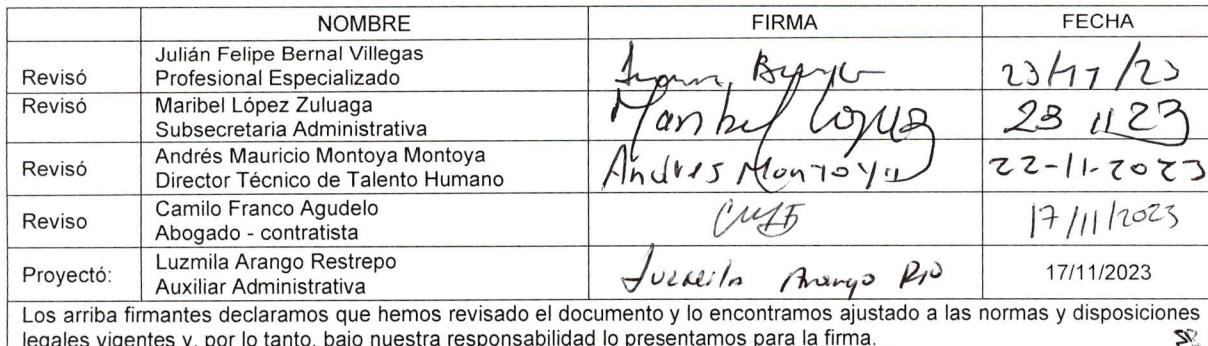 NOMBRE FIRMA FECHA
Revisó Julián Felipe Bernal Villegas
Profesional Especializado 23/11/23
Revisó Maribel López Zuluaga
Subsecretaria Administrativa Maribel López 23 11 23
Revisó Andrés Mauricio Montoya Montoya
Director Técnico de Talento Humano Andres Montoya 22-11-2023
Reviso Camilo Franco Agudelo
Abogado - contratista 17/11/2023
Proyectó: Luzmila Arango Restrepo
Auxiliar Administrativa Luzmila Arango Rpo 17/11/2023
Los arriba firmantes declaramos que hemos revisado el documento y lo encontramos ajustado a las normas y disposiciones
legales vigentes y, por lo tanto, bajo nuestra responsabilidad lo presentamos para la firma.